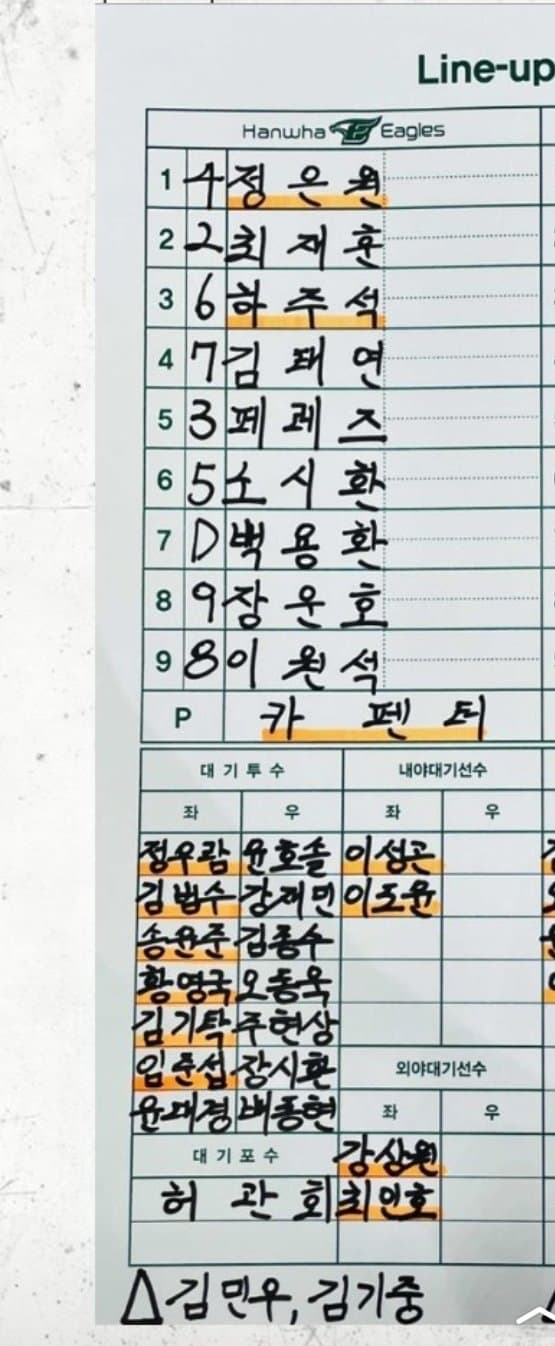 Line-up
Hanwha Eagles
1 4 정은원
2 2 최재훈
3 6 하주석
4 7 김태연
5 3 페레즈
6 5 노시환
7 D 백용환
8 9 장운호
9 8 이원석
P 카펜터
대기투수 내야대기선수
좌 우 좌 우
정우람 윤호솔 이성곤
김범수 강재민 이도윤
송윤준 김종수
황영국 오동욱
김기탁 주현상
임준섭 장시환
윤대경 배동현
외야대기선수
좌 우
대기포수 강상원
허관회 최인호
△김민우, 김기중